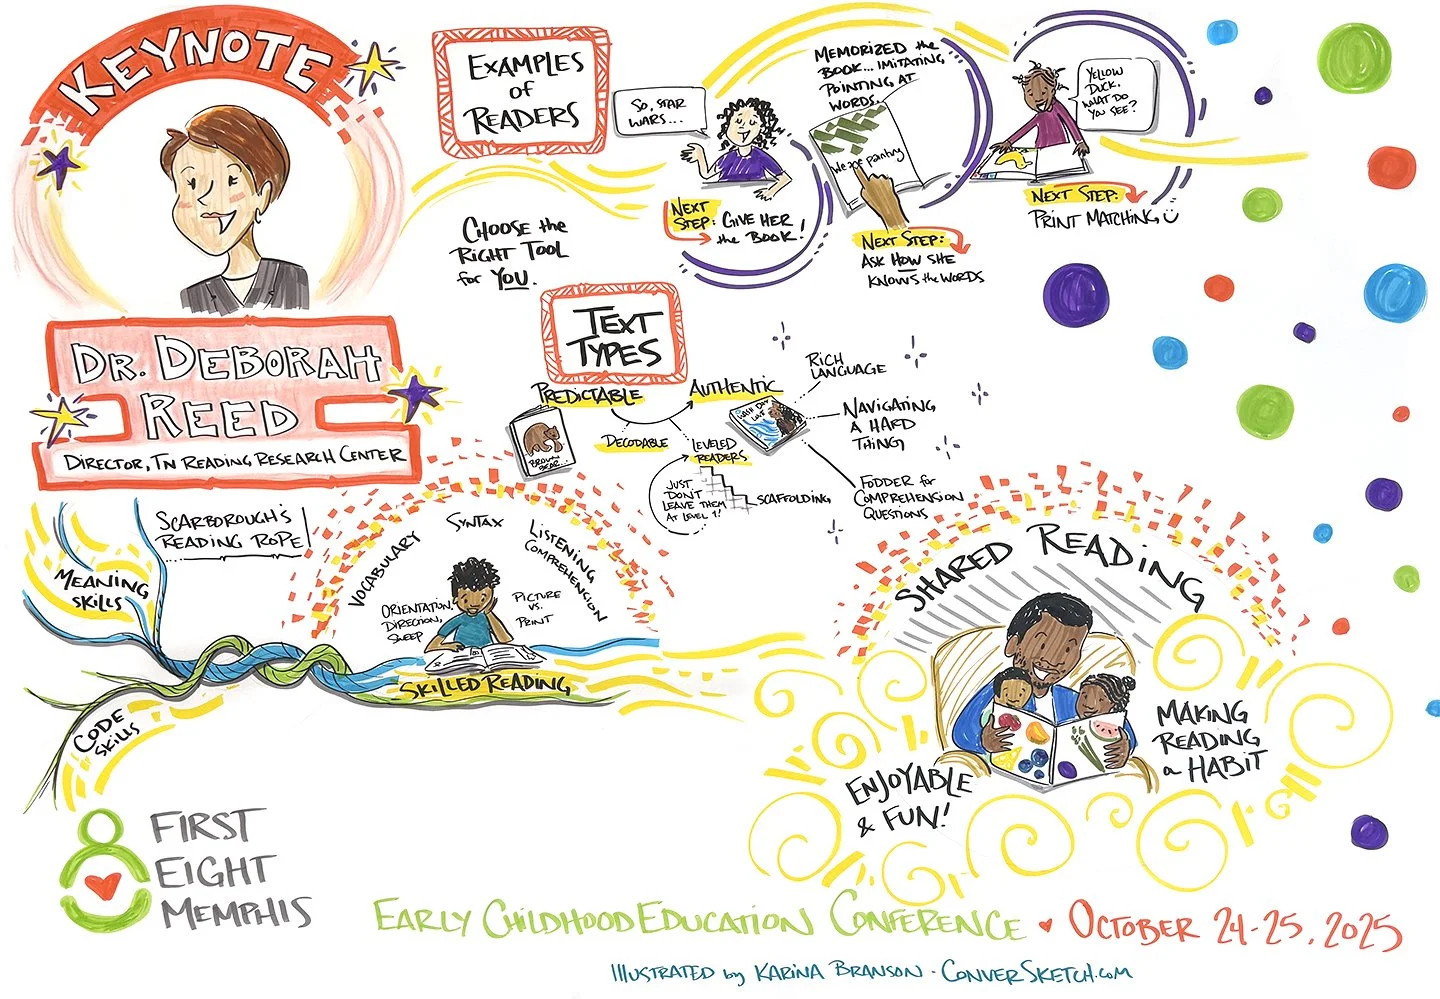 KEYNOTE
DR. DEBORAH
REED
DIRECTOR, TN READING RESEARCH CENTER
EXAMPLES
OF
READERS
SO, STAR
WARS...
NEXT
STEP: GIVE HER
the BOOK!
MEMORIZED the
BOOK... IMITATING
POINTING AT
WORDS.
We are painting
NEXT STEP:
ASK HOW SHE
KNOWS the WORDS
YELLOW
DUCK.
WHAT DO
YOU SEE?
NEXT STEP:
PRINT MATCHING
CHOOSE the
RIGHT TOOL
for YOU.
TEXT
TYPES
PREDICTABLE
BROWN
BEAR...
DECODABLE
LEVELED
READERS
JUST
DON'T
LEAVE THEM
AT LEVEL 1!
SCAFFOLDING
AUTHENTIC
WASH DAY
LOVE
RICH
LANGUAGE
NAVIGATING
A HARD
THING
FODDER for
COMPREHENSION
QUESTIONS
SCARBOROUGH'S
READING ROPE
MEANING
SKILLS
CODE
SKILLS
VOCABULARY
SYNTAX
LISTENING
COMPREHENSION
ORIENTATION,
DIRECTION,
SWEEP
PICTURE
VS.
PRINT
SKILLED READING
SHARED READING
ENJOYABLE
& FUN!
MAKING
READING
a HABIT
FIRST
EIGHT
MEMPHIS
EARLY CHILDHOOD EDUCATION CONFERENCE ♥ OCTOBER 24-25, 2025
ILLUSTRATED by KARINA BRANSON · CONVERSKETCH.COM